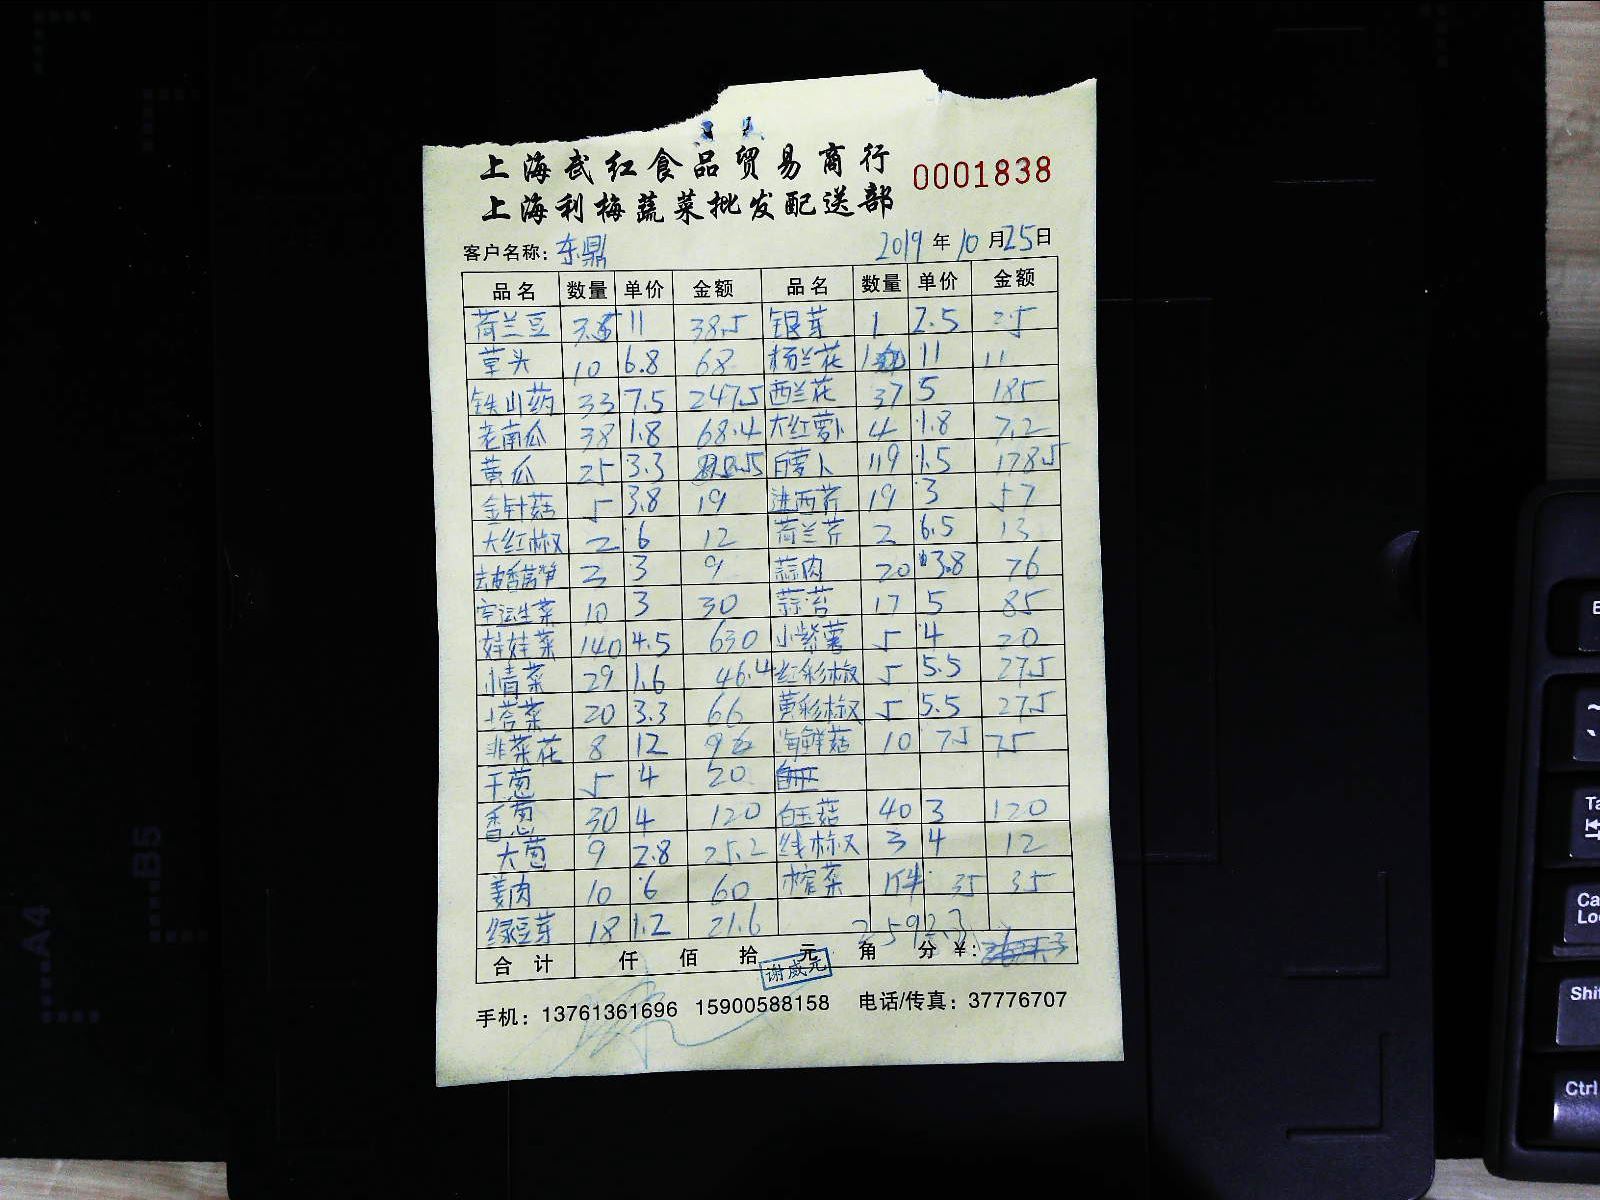 上海武红食品贸易商行
0001838
上海利梅蔬菜批发配送部
客户名称：东鼎 2019年10月25日
品名 数量 单价 金额 品名 数量 单价 金额
荷兰豆 3.5 11 38.5 银芽 1 2.5 2.5
草头 10 6.8 68 杨兰花 1 11 11
铁山药 33 7.5 247.5 西兰花 37 5 185
老南瓜 38 1.8 68.4 大红萝卜 4 1.8 7.2
黄瓜 25 3.3 82.5 白萝卜 119 1.5 178.5
金针菇 5 3.8 19 进西芹 19 3 57
大红椒 2 6 12 荷兰芹 2 6.5 13
去皮香莴笋 3 3 9 蒜肉 20 3.8 76
空运生菜 10 3 30 蒜苔 17 5 85
娃娃菜 140 4.5 630 小紫薯 5 4 20
小青菜 29 1.6 46.4 红彩椒 5 5.5 27.5
塔菜 20 3.3 66 黄彩椒 5 5.5 27.5
韭菜花 8 12 96 海鲜菇 10 7.5 75
干葱 5 4 20
香葱 30 4 120 白玉菇 40 3 120
大葱 9 2.8 25.2 线椒 3 4 12
姜肉 10 6 60 榨菜 1件 35 35
绿豆芽 18 1.2 21.6
2592.3
合计 仟 佰 拾 元 角 分 ¥:
谢威元
手机：13761361696 15900588158 电话/传真：37776707
A4
B5
Ctrl